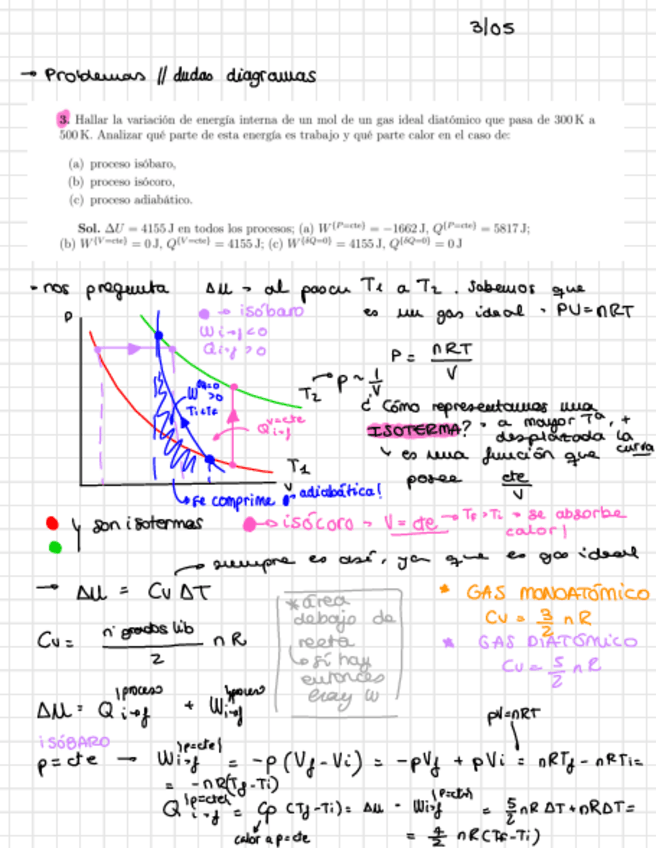 3/05
→ Problemas // dudas diagramas
3. Hallar la variación de energía interna de un mol de un gas ideal diatómico que pasa de 300 K a
500 K. Analizar qué parte de esta energía es trabajo y qué parte calor en el caso de:
(a) proceso isóbaro,
(b) proceso isócoro,
(c) proceso adiabático.
Sol. ΔU = 4155 J en todos los procesos; (a) W^(P=cte) = −1662 J, Q^(P=cte) = 5817 J;
(b) W^(V=cte) = 0 J, Q^(V=cte) = 4155 J; (c) W^(δQ=0) = 4155 J, Q^(δQ=0) = 0 J
• nos pregunta ΔU → al pasar T1 a T2. Sabemos que
es un gas ideal • PV = nRT
P
● → isóbaro
Wi→f < 0
Qi→f > 0
P = nRT / V
T2
P ~ 1/V
W^Q=0 > 0
Ti < Tf
Q^V=cte i→f
¿Cómo representamos una
ISOTERMA? • a mayor Tª, +
desplazada la curva
T1
V
↳ es una función que
posee cte / V
↳ se comprime adiabática!
● y son isotermas
●
●→ isócoro → V = cte → Tf > Ti → se absorbe
calor!
siempre es así, ya que es gas ideal
→ ΔU = Cv ΔT
Cv = nº grados lib / 2 nR
* área
debajo de
recta
↳ si hay
entonces
eray W
* GAS MONOATÓMICO
Cv = 3/2 nR
* GAS DIATÓMICO
Cv = 5/2 nR
ΔU = Q^(proceso) i→f + W^(proceso) i→f
pV=nRT
ISÓBARO
p = cte → W^(p=cte) i→f = −p (Vf − Vi) = −pVf + pVi = nRTf − nRTi =
= −nR(Tf − Ti)
Q^(p=cte) i→f = Cp (Tf − Ti) = ΔU − W^(p=cte) i→f = 5/2 nR ΔT + nRΔT =
calor a p=cte
= 7/2 nR(Tf − Ti)